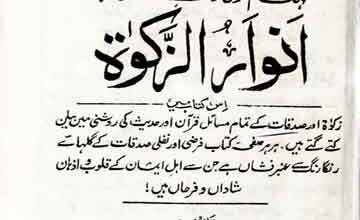 انوار الزکوٰۃ
اس کتاب میں
زکوٰۃ اور صدقات کے تمام مسائل قرآن اور حدیث کی روشنی میں بیان
کئے گئے ہیں۔ ہر ہر صفحہ کتاب فرضی اور نفلی صدقات کے گلہائے
رنگا رنگ سے عنبر فشاں ہے جن سے اہل ایمان کے قلوب و اذہان
شاداں و فرحاں ہیں!